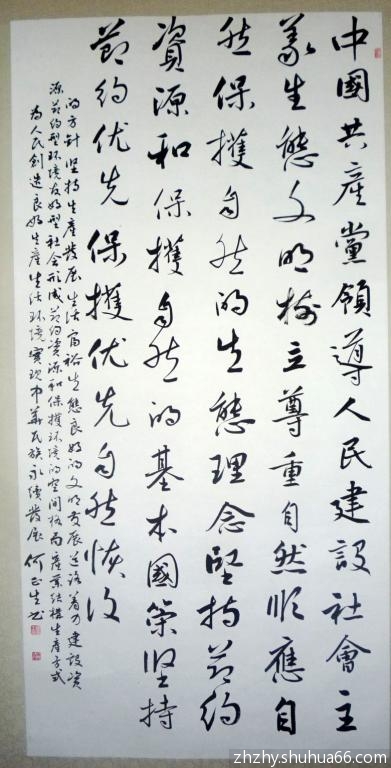 中國共產黨領導人民建設社會主
義生態文明樹立尊重自然順應自
然保擭自然的生態理念堅持节約
資源和保擭自然的基本國策坚持
节約优先保擭优先自然恢復
的方针坚持生產發展生活富裕生態良好的文明發展道路着力建設资
源节约型环境友好型社会形成节约资源和保擭环境的空间格局產業结構生產方式
为人民創造良好生產生活环境實现中華民族永續發展 何正生书
zhzhy.shuhua66.com